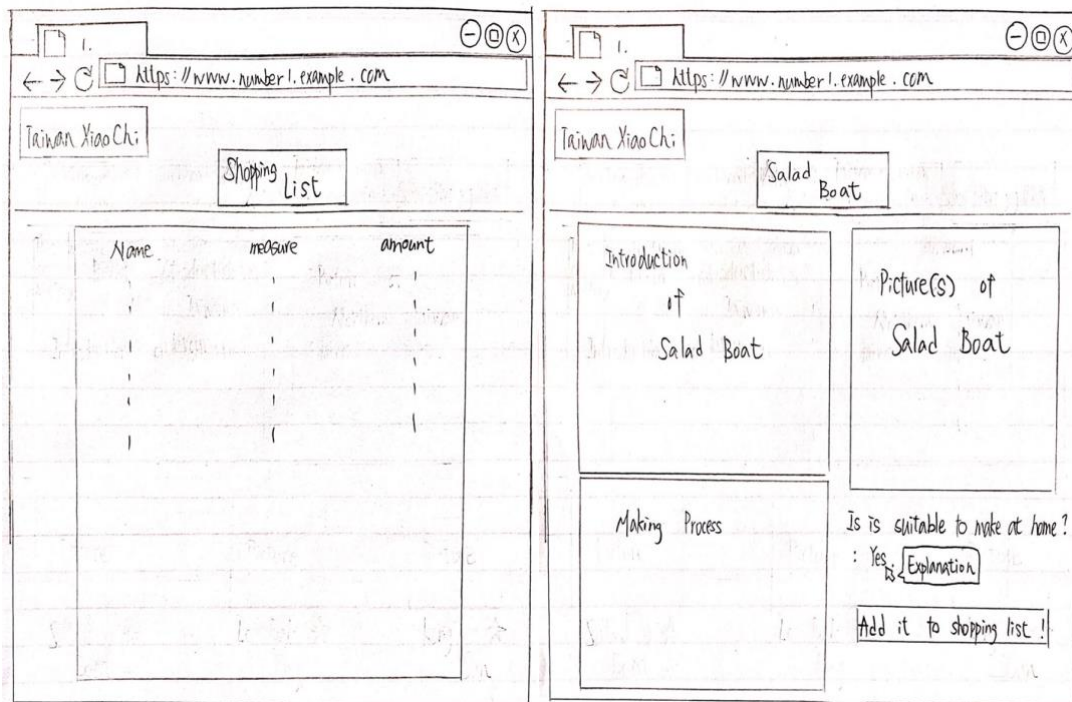 1.
https://www.number1.example.com
Taiwan XiaoChi
Shopping
List
Name measure amount
1.
https://www.number1.example.com
Taiwan XiaoChi
Salad
Boat
Introduction
of
Salad Boat
Picture(s) of
Salad Boat
Making Process
Is is suitable to make at home?
: Yes.
Explanation
Add it to shopping list!